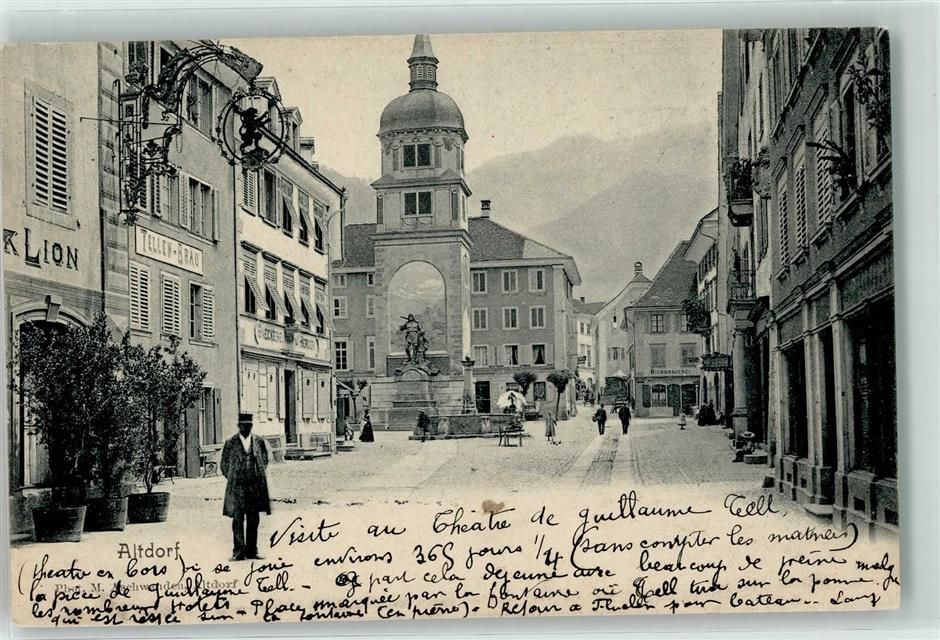 LION
TELLEN-BRÄU
BIERBRAUEREI
Altdorf
Phot. M. Aschwanden, Altdorf
Visite au Théatre de Guillaume Tell,
(theatre en bois) où se joue environs 365 jours 1/4 (sans compter les matinées)
la pièce de Guillaume Tell. - à part cela déjeuné avec beaucoup de peine malg
les nombreux volets - Place marquée par la fontaine où Tell tira sur la pomme
qui est restée sur la fontaine (en pierre). Retour à Fluelen pour bateau..